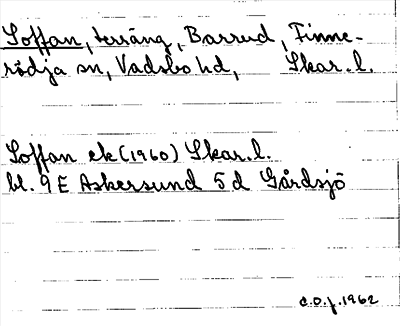 Soffan, terräng, Barrud, Finne-
rödja sn, Vadsbo hd, Skar. l.
Soffan ek (1960) Skar. l.
bl. 9 E Askersund 5 d Gårdsjö
C.O.f. 1962